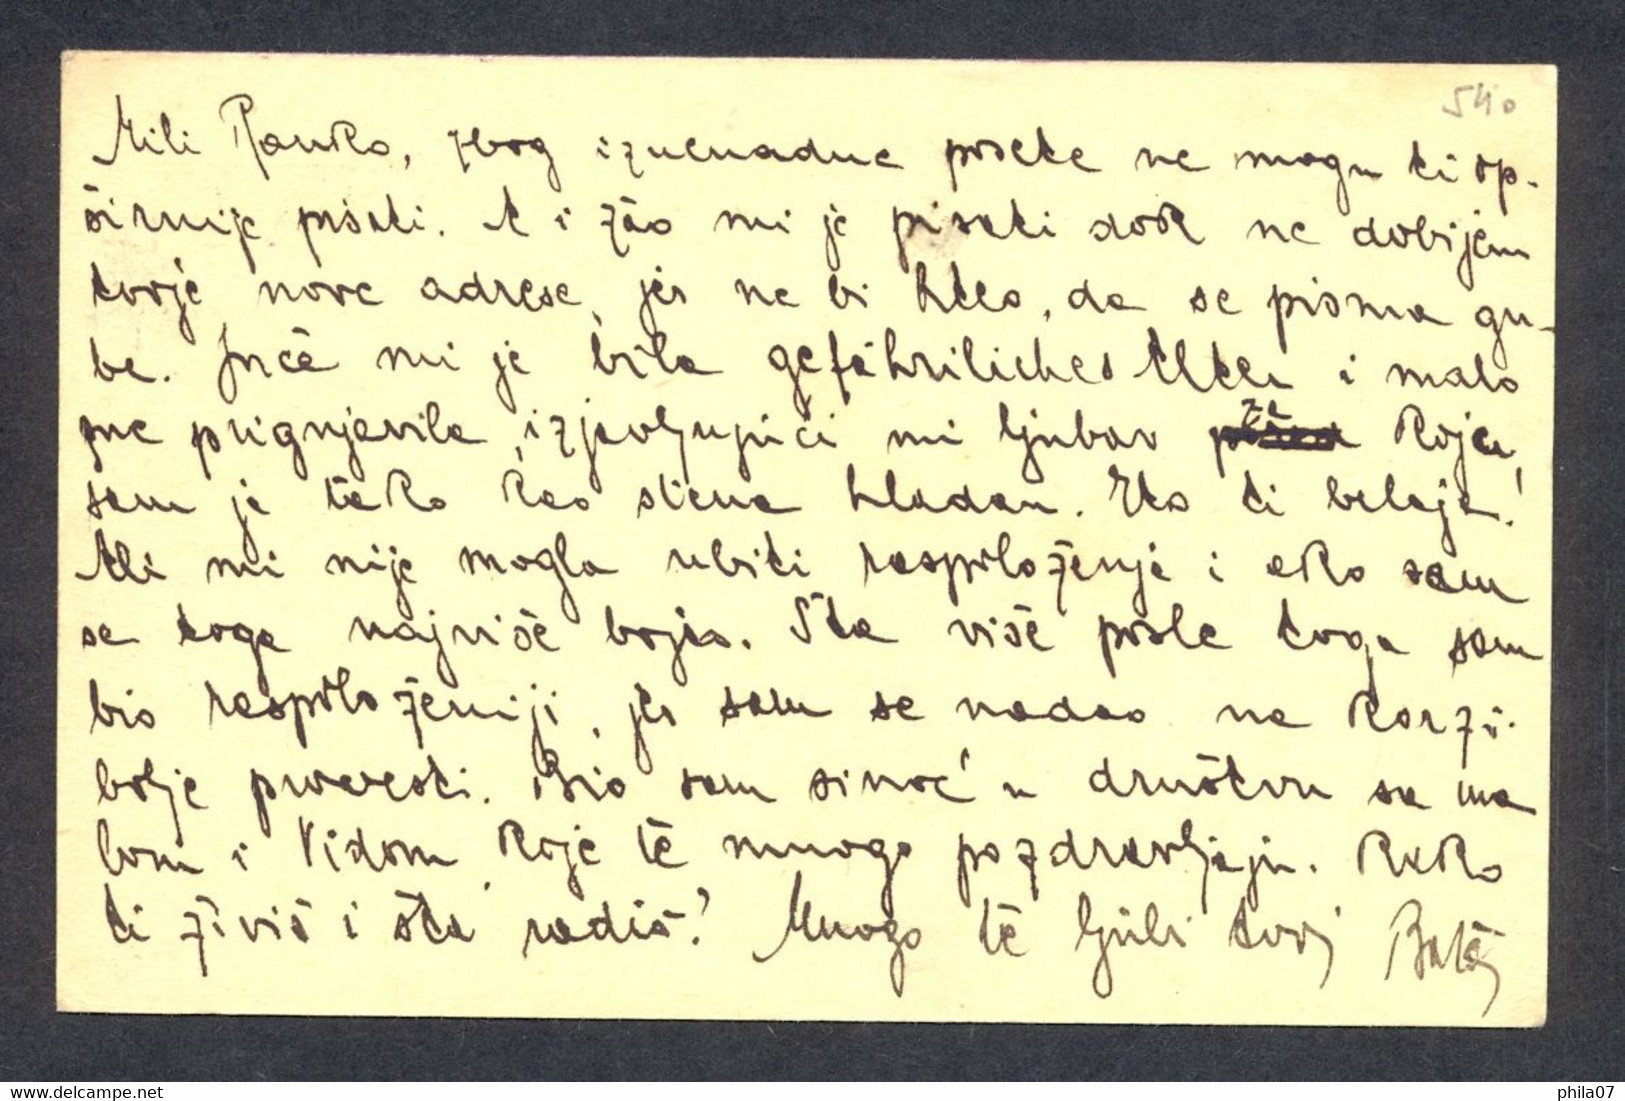 540
Mili Ranko, zbog iznenadne posete ne mogu ti op-
širnije pisati. A i žao mi je pisati dok ne dobijem
tvoje nove adrese, jer ne bi hteo, da se pisma gu-
be. Juče mi je bila gefährliches Alter i malo
me prignjavila, izjavljujući mi ljubav za koju
sam ja tako kao stena hladan. Eto ti belaja!
Ali mi nije mogla ubiti raspoloženje i ako sam
se toga najviše bojao. Šta više posle toga sam
bio raspoloženiji, jer sam se nadao na korzi
bolje provesti. Bio sam sinoć u društvu sa ma
lom i Vidom, koje te mnogo pozdravljaju. Kako
ti živiš i šta radiš? Mnogo te ljubi tvoj
phila07